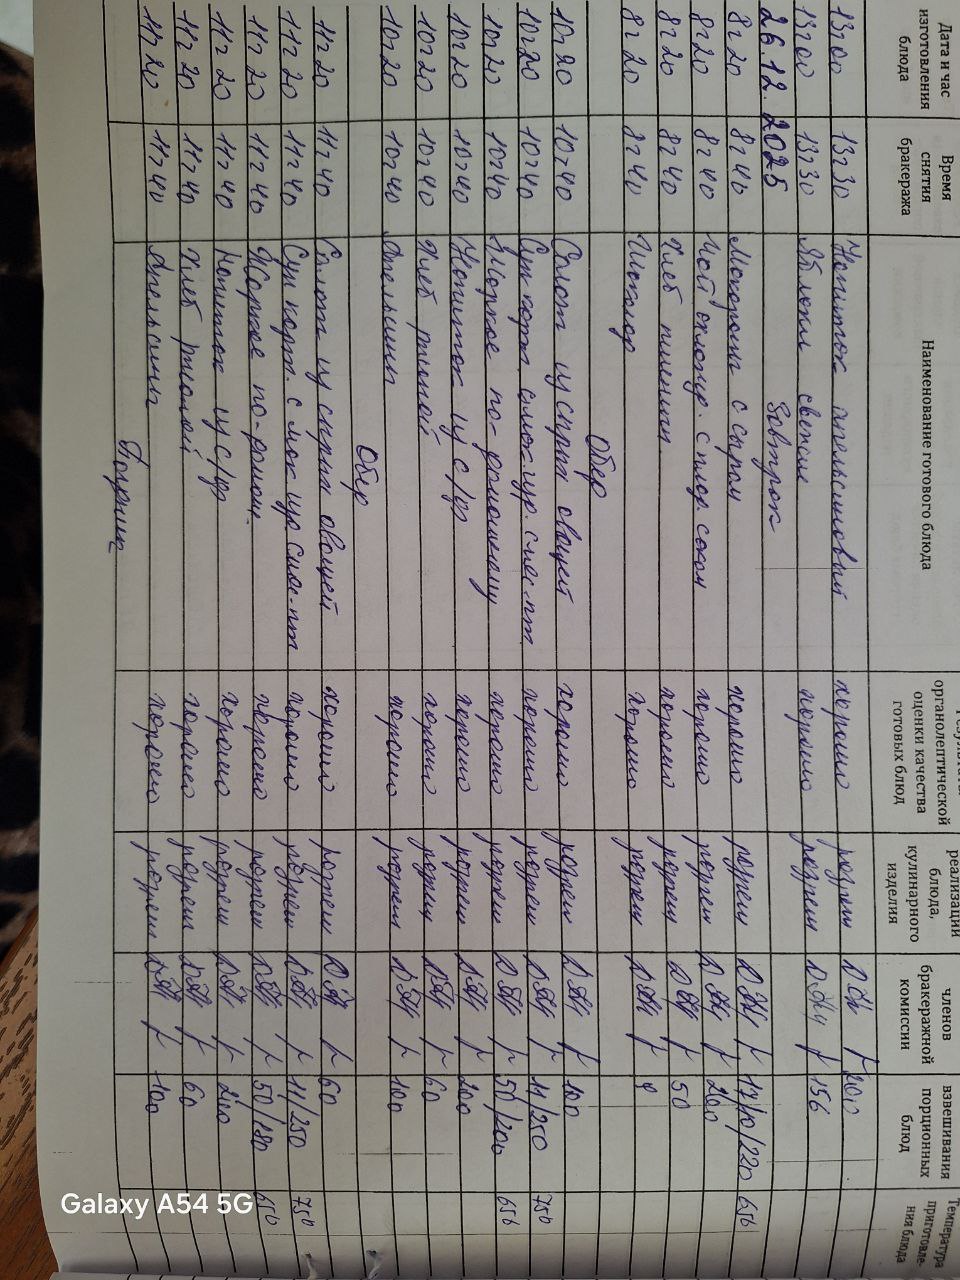 Дата и час изготовления блюда | Время снятия бракеража | Наименование готового блюда | органолептической оценки качества готовых блюд | реализации блюда, кулинарного изделия | членов бракеражной комиссии | взвешивания порционных блюд | Температура приготовления блюда
13 00 | 13 30 | Напиток апельсиновый | хорошо | разреш | 200
13 00 | 13 30 | Яблоки свежие | хорошо | разреш | 156
26.12.2025 Завтрак
8 20 | 8 40 | Макароны с сыром | хорошо | разреш | 65
8 20 | 8 40 | Чай с плод. соком | хорошо | разреш | 200
8 20 | 8 40 | Хлеб пшенич | хорошо | разреш | 50
8 20 | 8 40 | хорошо | разреш
Обед
10 20 | 10 40 | Салат из свежих овощей | хорошо | разреш | 100
10 20 | 10 40 | Суп карт. с мак. изд. | хорошо | разреш | 11/250 | 75
10 20 | 10 40 | Жаркое по-домашнему | хорошо | разреш | 50/200 | 65
10 20 | 10 40 | Напиток из с/фр | хорошо | разреш | 200
10 20 | 10 40 | Хлеб ржаной | хорошо | разреш | 60
10 20 | 10 40 | Апельсин | хорошо | разреш | 100
Обед
11 20 | 11 40 | Салат из свежих овощей | хорошо | разреш | 60
11 20 | 11 40 | Суп карт. с мак. изд. | хорошо | разреш | 11/250 | 75
11 20 | 11 40 | Жаркое по-домаш. | хорошо | разреш | 50/180 | 65
11 20 | 11 40 | Напиток из с/фр | хорошо | разреш | 200
11 20 | 11 40 | Хлеб ржаной | хорошо | разреш | 60
11 20 | 11 40 | Апельсин | хорошо | разреш | 100
Полдник
Galaxy A54 5G